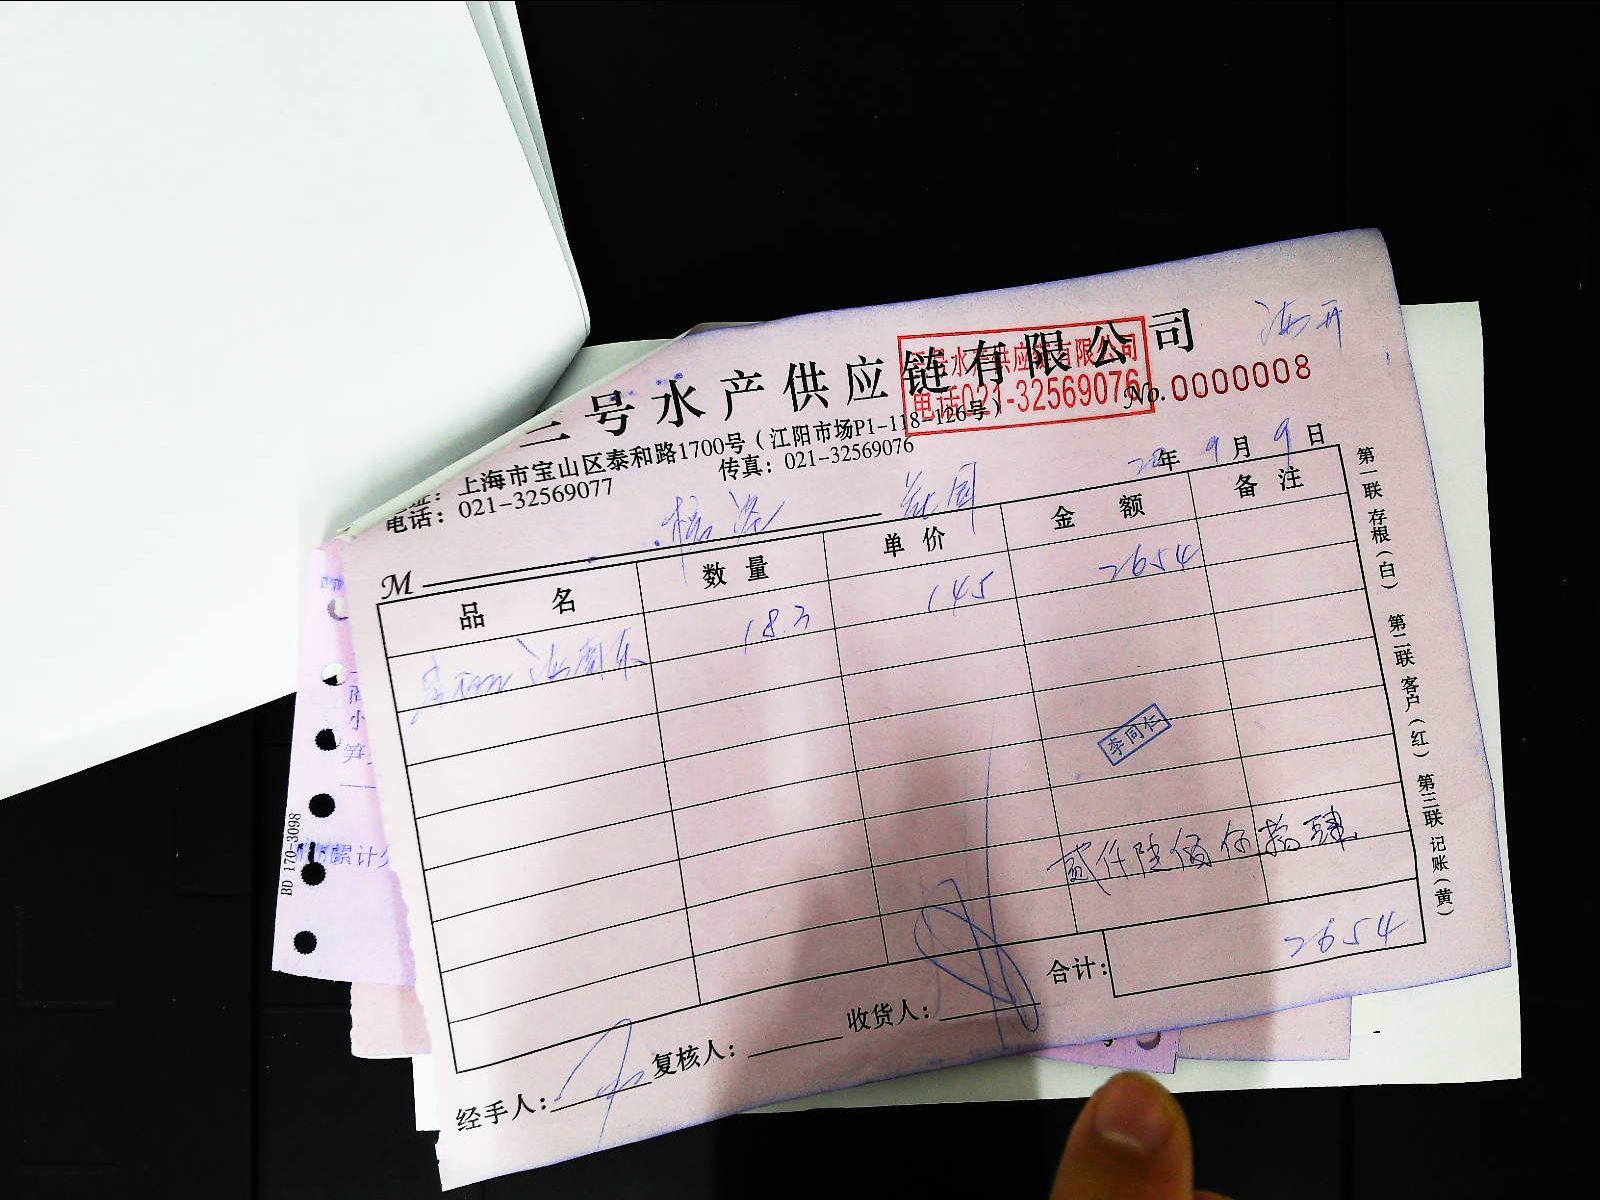 三号水产供应链有限公司
号水产供应链有限公司
电话021-32569076
No.0000008
址：上海市宝山区泰和路1700号（江阳市场P1-118-126号）
电话：021-32569077 传真：021-32569076
年 9 月 9 日
M
品 名 数 量 单 价 金 额 备 注
18.3 145 2654
李同仁
贰仟陆佰伍拾肆
合计： 2654
经手人： 复核人： 收货人：
第一联 存根（白） 第二联 客户（红） 第三联 记账（黄）
BD 170-3098
累计